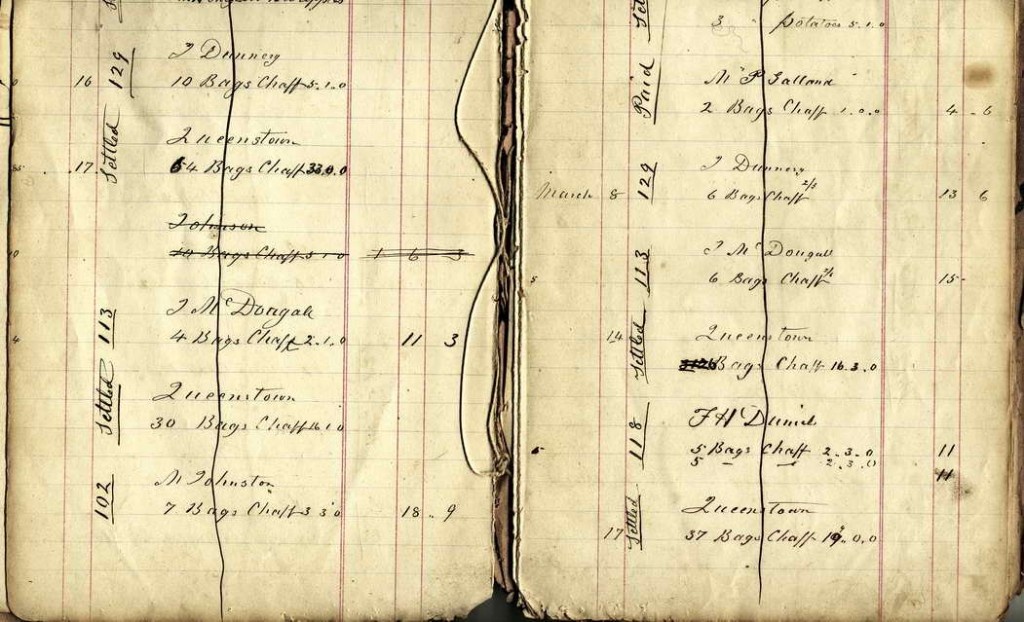 129
J Dunney
16 10 Bags Chaff 5.1.0
Settled
Queenstown
17 64 Bags Chaff 33.0.0
Johnson
10 Bags Chaff 5 1 0 1 6 3
113
J McDougall
4 Bags Chaff 2.1.0 11 3
Settled
Queenstown
30 Bags Chaff 16 1 0
102
M Johnston
7 Bags Chaff 3 3 0 18 . 9
3 potatoes 5.1.0
Paid
Mc P Galland
2 Bags Chaff 1.0.0 4 . 6
129
J Dunney
March 8 6 Bags Chaff 2/3 13 6
113
J McDougall
6 Bags Chaff 15 -
Settled
Queenstown
14 Bags Chaff 16.3.0
118
F H Daniels
5 Bags Chaff 2.3.0 11
5 - - 2.3.0 11
Settled
Queenstown
17 37 Bags Chaff 19.0.0